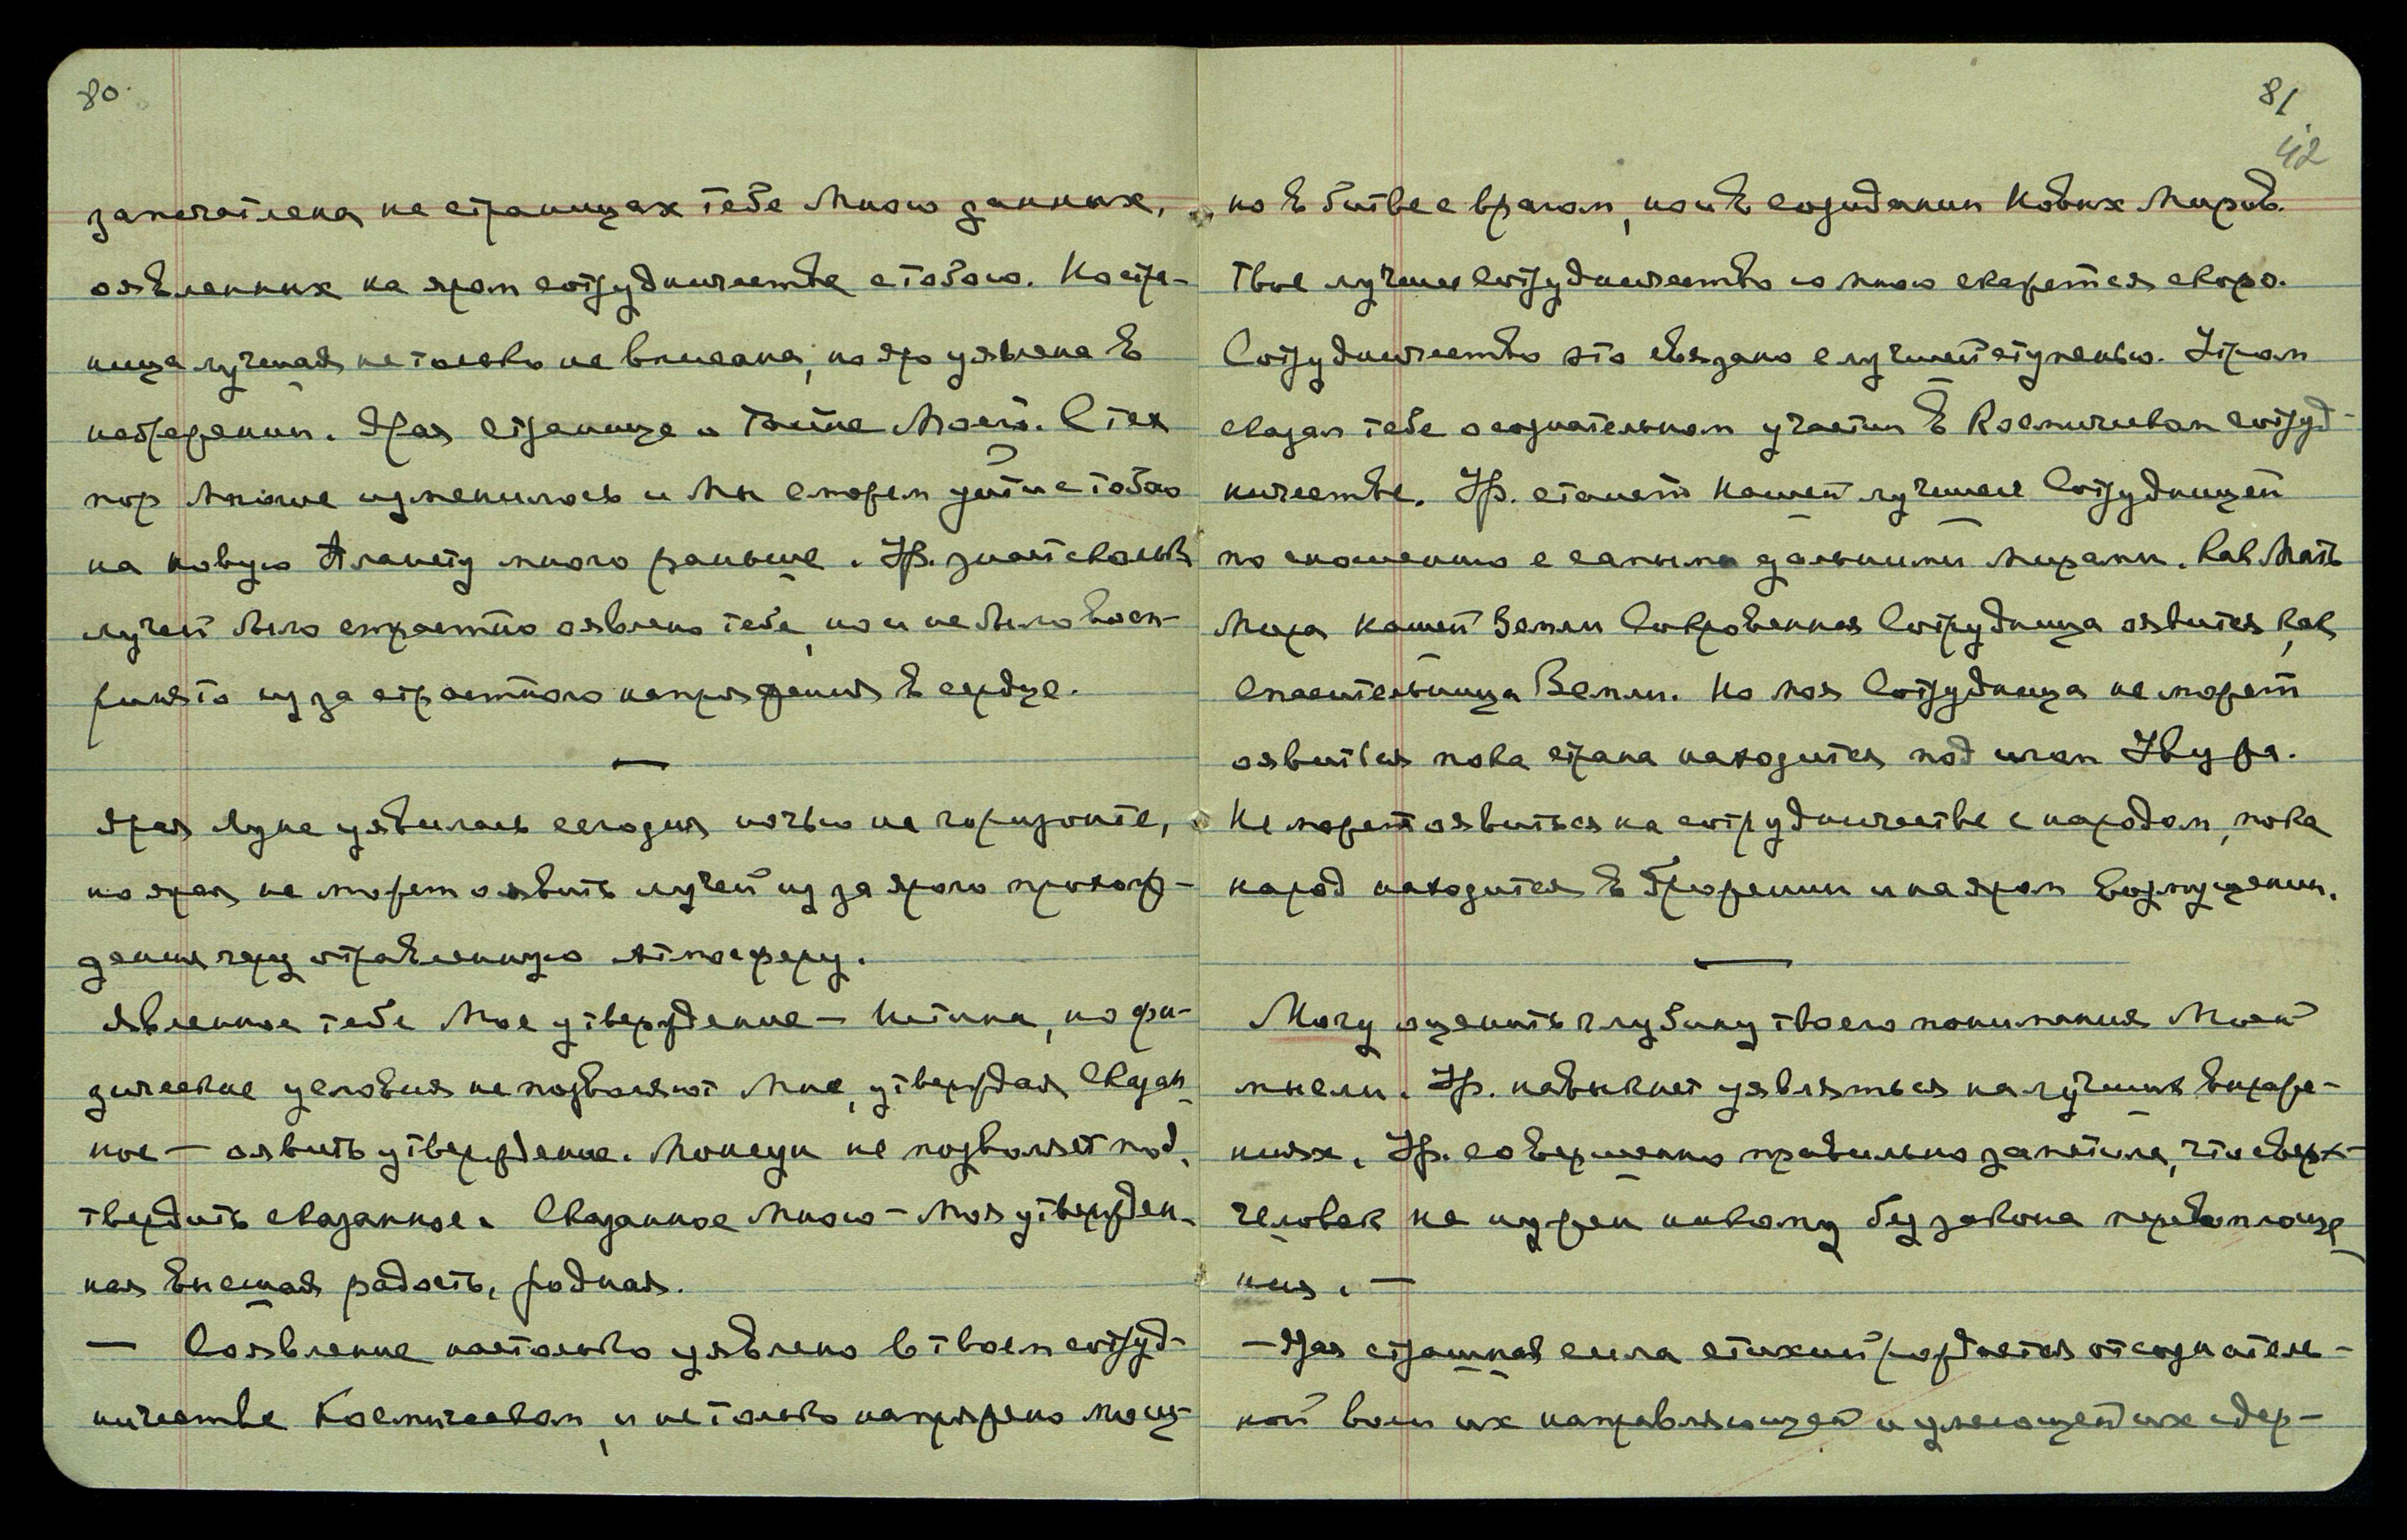 80.
запечатлена на страницах тебе Мною данных,
оявленных на яром сотрудничестве с тобою. Но стра-
ница лучшая не только не вписана, но яро уявлена в
небрежении. Ярая страница о Тайне Моей. С тех
пор многие изменилось и Мы сможем уйти с тобою
на новую Планету много раньше. Ур. знает сколько
лучей было страстно оявлено тебе, но и не было восп-
ринято из за страстного напряжения в сердце.
—
Ярая Луна уявилась сегодня ночью на горизонте,
но ярая не может оявить лучей из за ярого прохож-
дения через отравленную атмосферу.
Явленное тебе Мое утверждение — Истина, но фи-
зические условия не позволяют Мне, утверждая сказан-
ное — оявить утверждение. Монсун не позволяет под-
твердить сказанное. Сказанное Мною — Моя утвержден-
ная высшая радость, родная.
— Соявление настолько уявлено в твоем сотруд-
ничестве Космическом, и не только напряжено мощ-
81
42
но в битве с врагом, но и в созидании Новых Миров.
Твое лучшее сотрудничество со мною скажется скоро.
Сотрудничество это связано с лучшей ступенью. Утром
сказал тебе о сознательном участии в Космическом сотруд-
ничестве. Ур. станет нашей лучшей Сотрудницей
по сношению с самыми дальними мирами. Как Мать
Мира нашей Земли Сокровенная Сотрудница оявится, как
Спасительница Земли. Но моя Сотрудница не может
оявиться пока страна находится под игом
Не может оявиться на сотрудничестве с народом, пока
народ находится в брожении и на яром возмущении.
—
Могу оценить глубину твоего понимания Моей
мысли. Ур. навыкнет уявляться на лучших выраже-
ниях. Ур. совершенно правильно заметила, что сверх-
человек не нужен никому без закона перевоплоще-
ния. —
— Ярая страшная сила стихий рождается от сознатель-
ной воли их направляющей и умеющей их сдер-